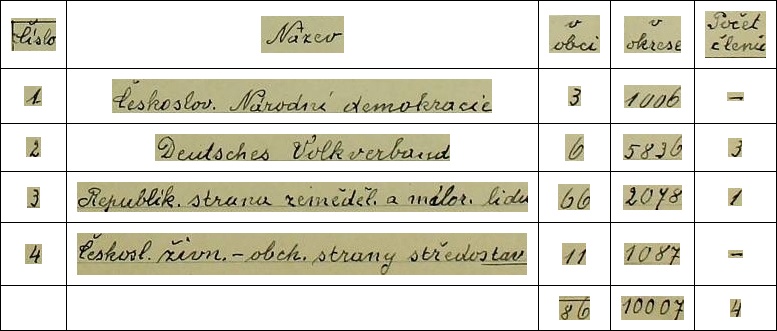 Číslo Název v obci v okrese Počet členů
1 Českoslov. Národní demokracie 3 1006 –
2 Deutsches Volkverband 6 5836 3
3 Republik. strana zeměděl. a málor. lidu 66 2078 1
4 Českosl. živn. - obch. strany středostav. 11 1087 –
86 10007 4